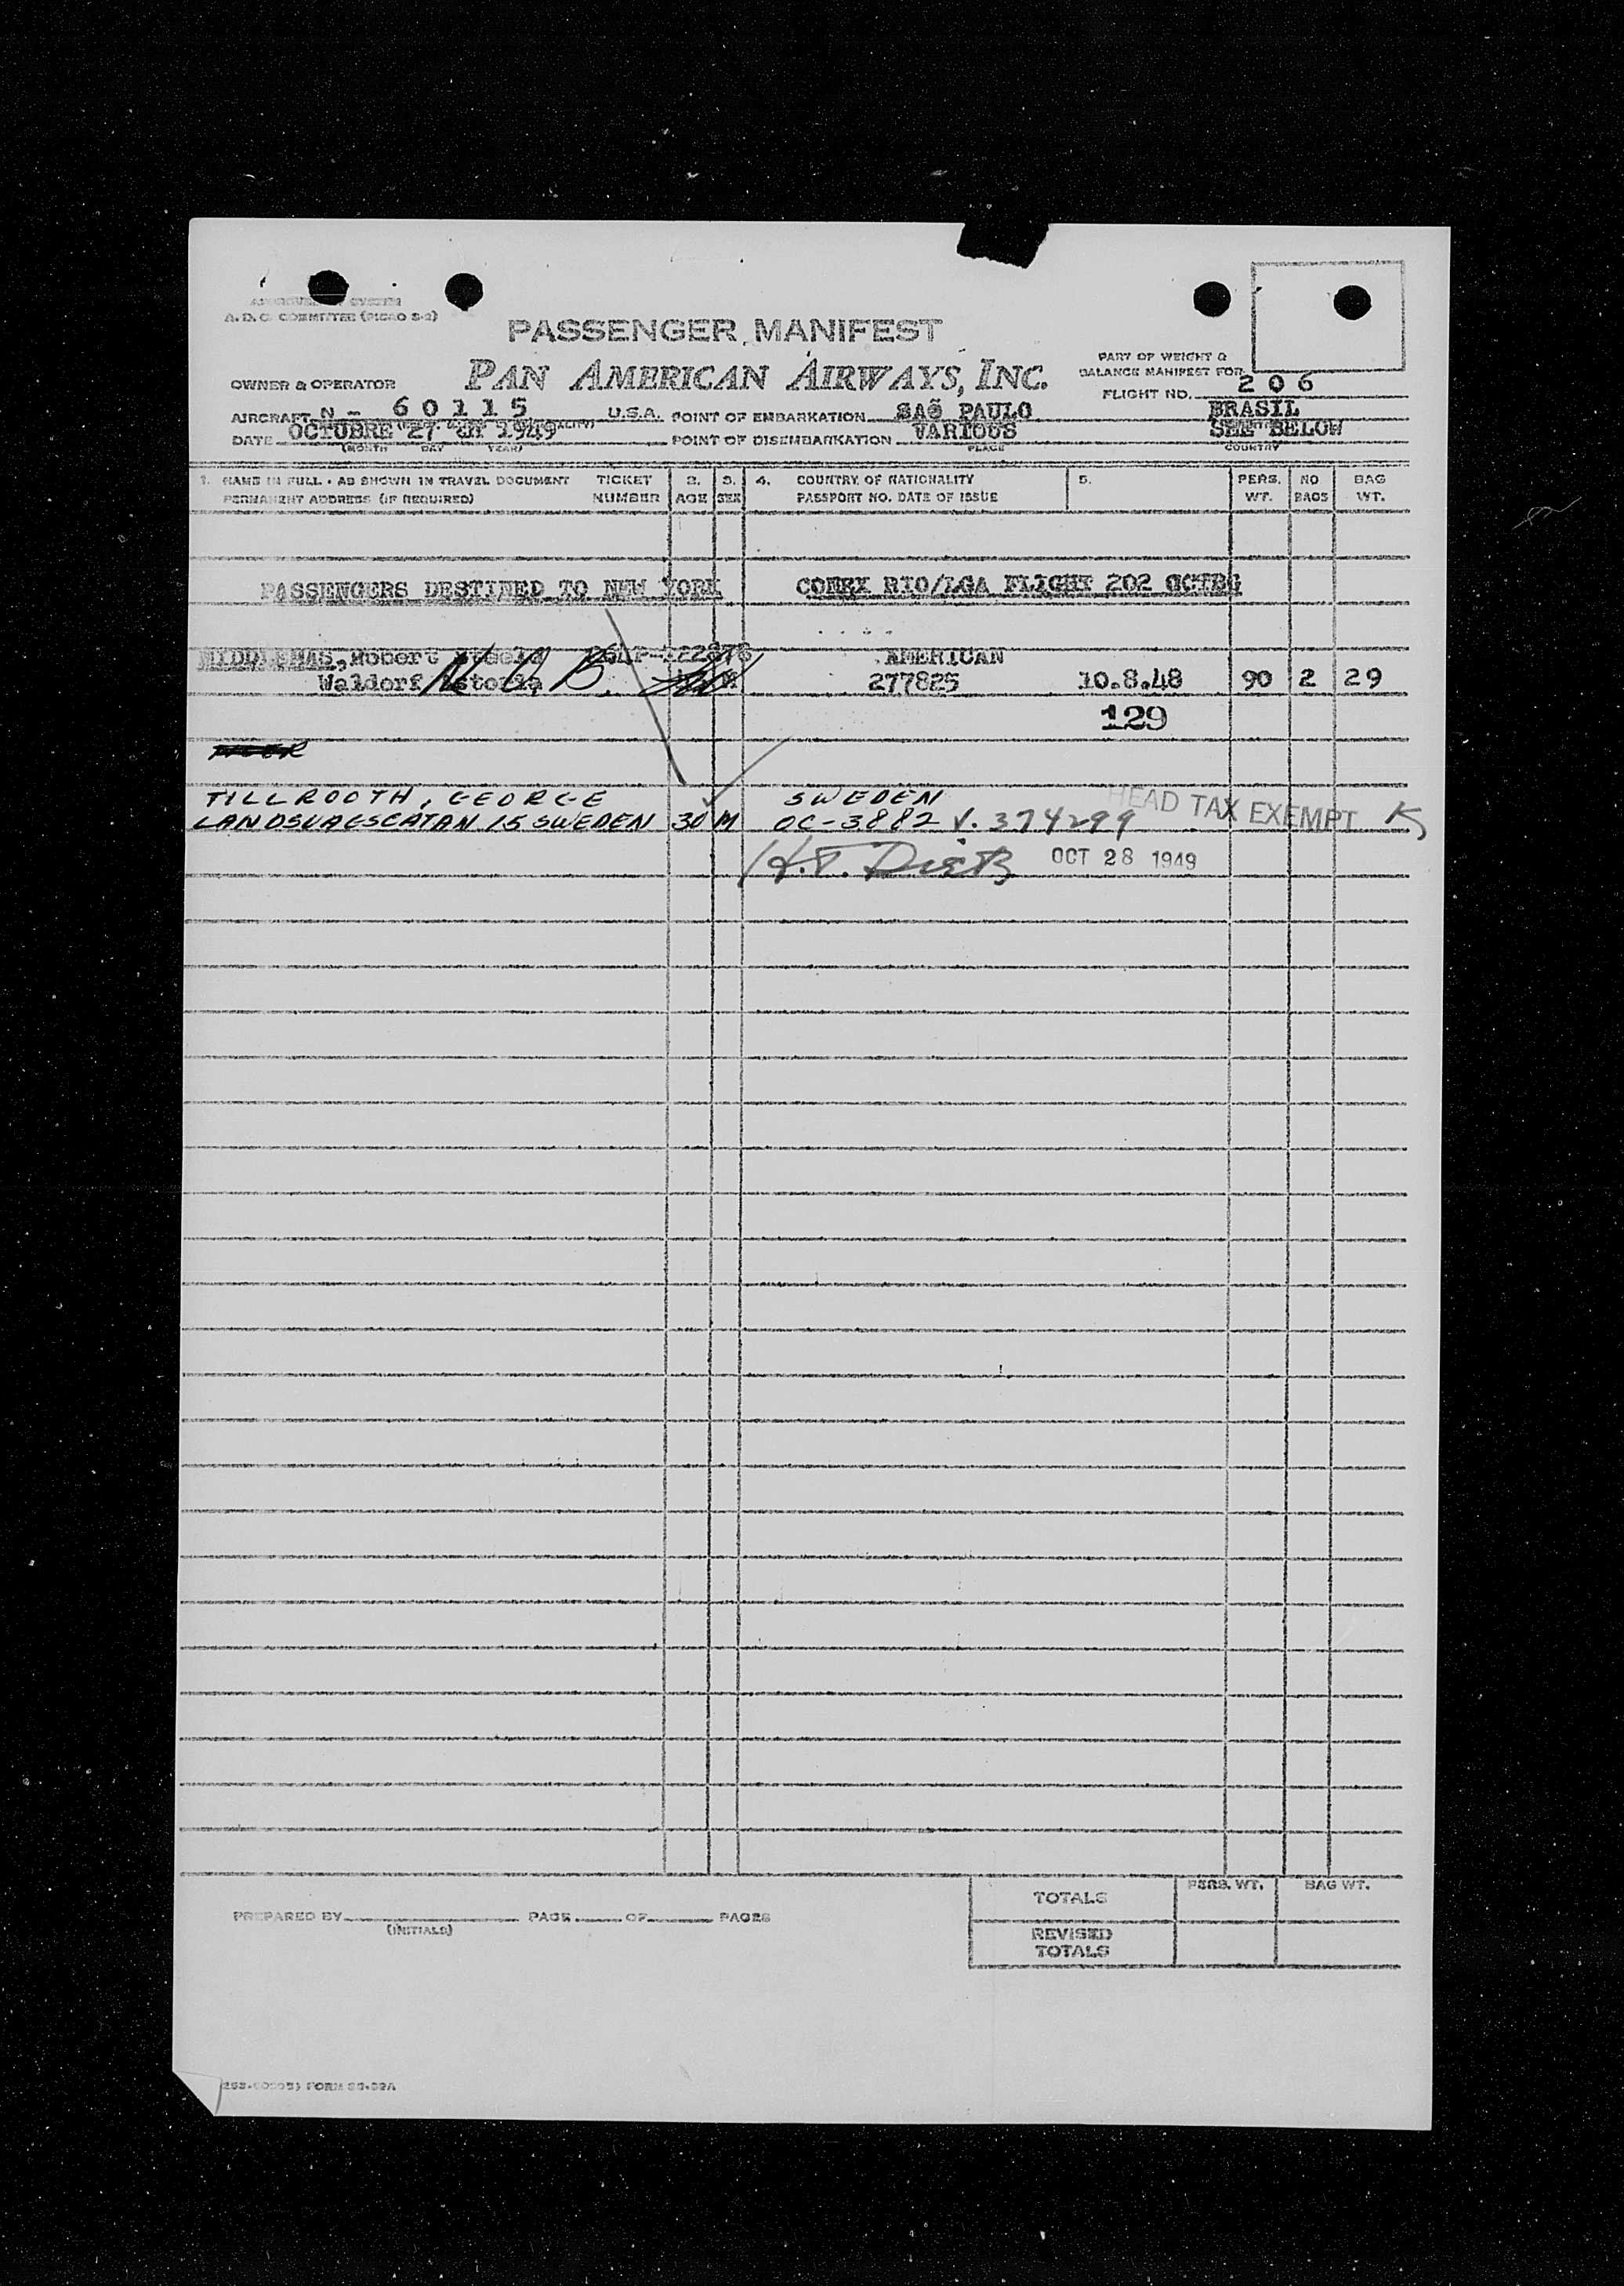 A. D. C. COMMITTEE (PICAO S-2)
PASSENGER MANIFEST
PAN AMERICAN AIRWAYS, INC.
PART OF WEIGHT &
BALANCE MANIFEST FOR
OWNER & OPERATOR
FLIGHT NO. 206
AIRCRAFT N - 60115 U.S.A. POINT OF EMBARKATION SAÕ PAULO BRASIL
DATE OCTUBRE 27 1949 POINT OF DISEMBARKATION VARIOUS SEE BELOW
(MONTH DAY YEAR) PLACE COUNTRY
1. NAME IN FULL - AS SHOWN IN TRAVEL DOCUMENT TICKET 2. 3. 4. COUNTRY OF NATIONALITY 5. PERS. NO BAG
PERMANENT ADDRESS (IF REQUIRED) NUMBER AGE SEX PASSPORT NO. DATE OF ISSUE WT. BAGS WT.
PASSENGERS DESTINED TO NEW YORK RIO/LGA FLIGHT 202
MIDDLEMAS, Robert Steele AMERICAN
Waldorf Astoria M 277825 10.8.48 90 2 29
129
TILLROOTH, GEORGE SWEDEN HEAD TAX EXEMPT
LANDSVAEGSCATAN 15 SWEDEN 30 M OC-3882 V. 374299
OCT 28 1949
TOTALS PERS. WT. BAG WT.
PREPARED BY PAGE OF PAGES
(INITIALS)
REVISED
TOTALS